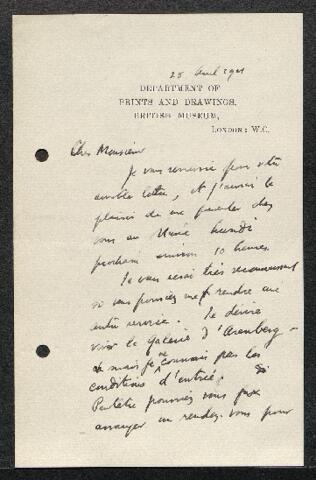 25 April 1901
DEPARTMENT OF
PRINTS AND DRAWINGS,
BRITISH MUSEUM,
LONDON: W.C.
Cher Monsieur
Je vous remercie pour votre
aimable lettre, et j'aurai le
plaisir de me presenter chez
vous au Musée lundi
prochain environ 10 heures.
Je vous serai très reconnaissant
si vous pouviez me rendre un
autre service. Je desire
voir la Galerie d'Arenberg -
mais je ne connais pas les
conditions d'entrée.
Peutetre pourriez vous
arranger un rendez-vous pour